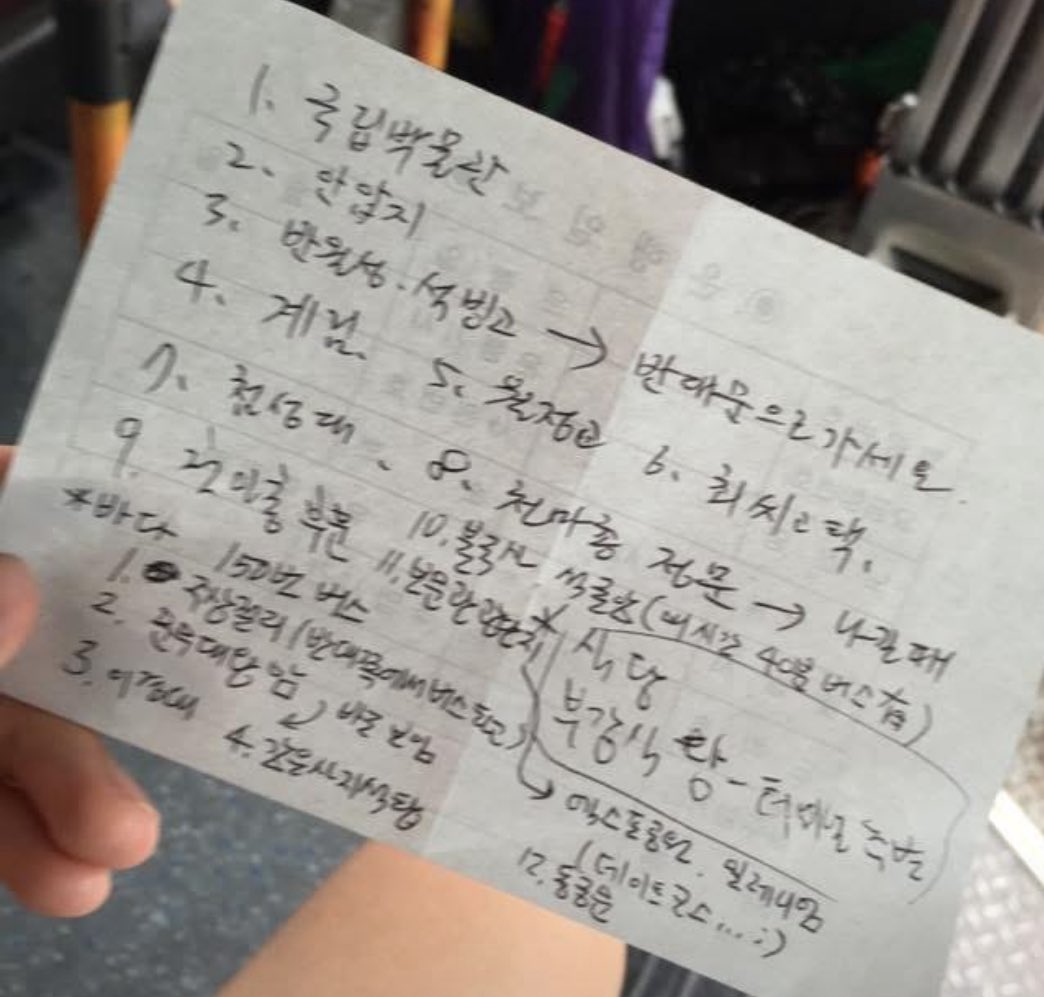 1. 국립박물관
2. 안압지
3. 반월성. 석빙고 → 반대문으로 가세요.
4. 계림. 5. 월정교 6. 최씨고택.
7. 첨성대. 8. 천마총 정문 → 나갈때
9. 부훈 10. 불국사 석굴암 (매시간 40분 버스有)
*바다 150번 버스 11. 보문관광단지
1. 주상절리 (반대쪽에서 버스타고)
2. 문무대왕암 바로 보임
3. 이견대 4. 감은사지석탑
* 식당
부강식당 - 터미널
→ 엑스포공원. 밀레니엄
(데이트코스...:)
12. 동궁원